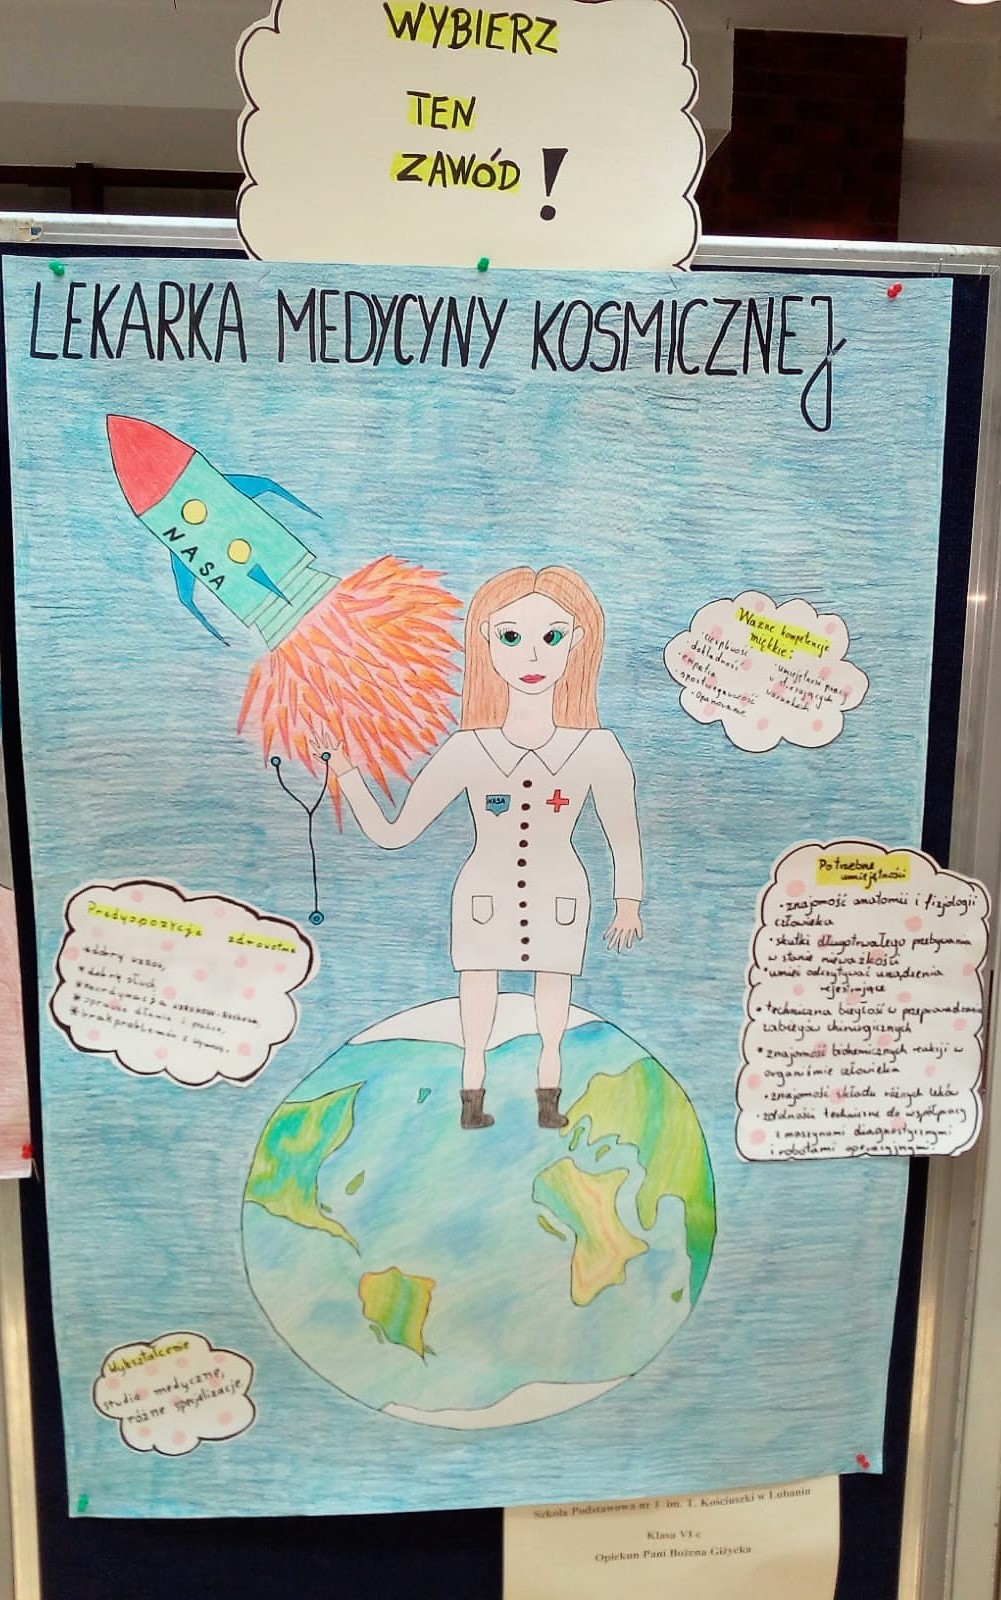 WYBIERZ
TEN
ZAWÓD!
LEKARKA MEDYCYNY KOSMICZNEJ
NASA
Ważne kompetencje
miękkie:
· cierpliwość
· dokładność
· empatia
· spostrzegawczość
· opanowanie
· umiejętność pracy
w stresujących
warunkach
NASA
Predyspozycje zdrowotne
*dobry wzrok,
*dobry słuch,
*koordynacja wzrokowo-ruchowa,
*sprawne dłonie i palce,
*brak problemów z wymową.
Potrzebne
umiejętności
· znajomość anatomii i fizjologii
człowieka
· skutki długotrwałego przebywania
w stanie nieważkości
· umieć odczytywać urządzenia
rejestrujące
· techniczna biegłość w przeprowadzaniu
zabiegów chirurgicznych
· znajomość biochemicznych reakcji w
organizmie człowieka
· znajomość składu różnych leków
· zdolności techniczne do współpracy
z maszynami diagnostycznymi
i robotami operacyjnymi.
Wykształcenie
studia medyczne,
różne specjalizacje
Szkoła Podstawowa nr 1 im. T. Kościuszki w Lubaniu
Klasa VI c
Opiekun Pani Bożena Giżycka